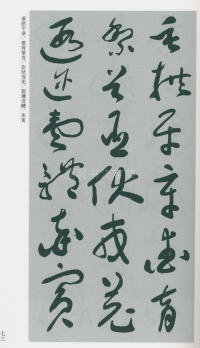 垂拱平章愛育
黎首臣伏戎羌
遐邇壹體率賓
垂拱平章，愛育黎首，臣伏戎羌，遐邇壹體，率賓
七三